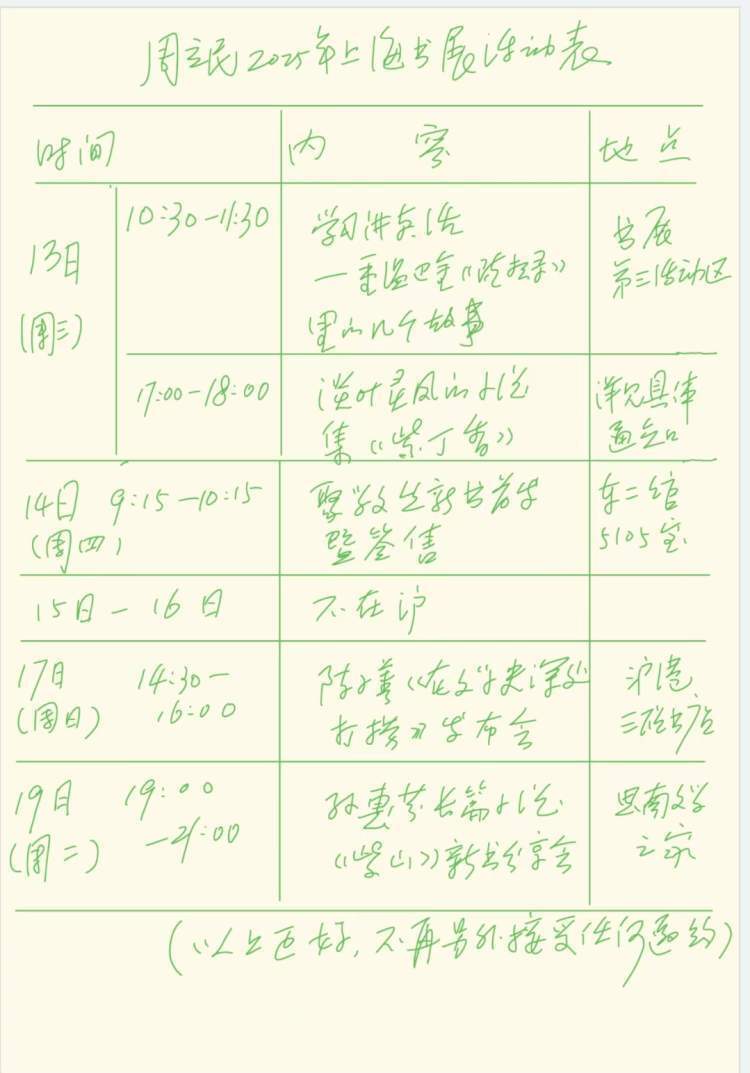 周立民2025年上海书展活动表
时间 内容 地点
13日
(周三)
10:30-11:30
学习讲真话
—重温巴金《随想录》
里的几个故事
书展
第三活动区
17:00-18:00
谈叶灵凤的小说
集《紫丁香》
详见具体
通知
14日 9:15-10:15
(周四)
新书首发
暨签售
东二馆
5105室
15日-16日
不在沪
17日 14:30-
(周日) 16:00
陈子善《在文学史深处
打捞》发布会
沪港
三联书店
19日 19:00
(周二) -21:00
孙惠芬长篇小说
《紫山》新书分享会
思南文学
之家
(以上已好,不再另外接受任何邀约)